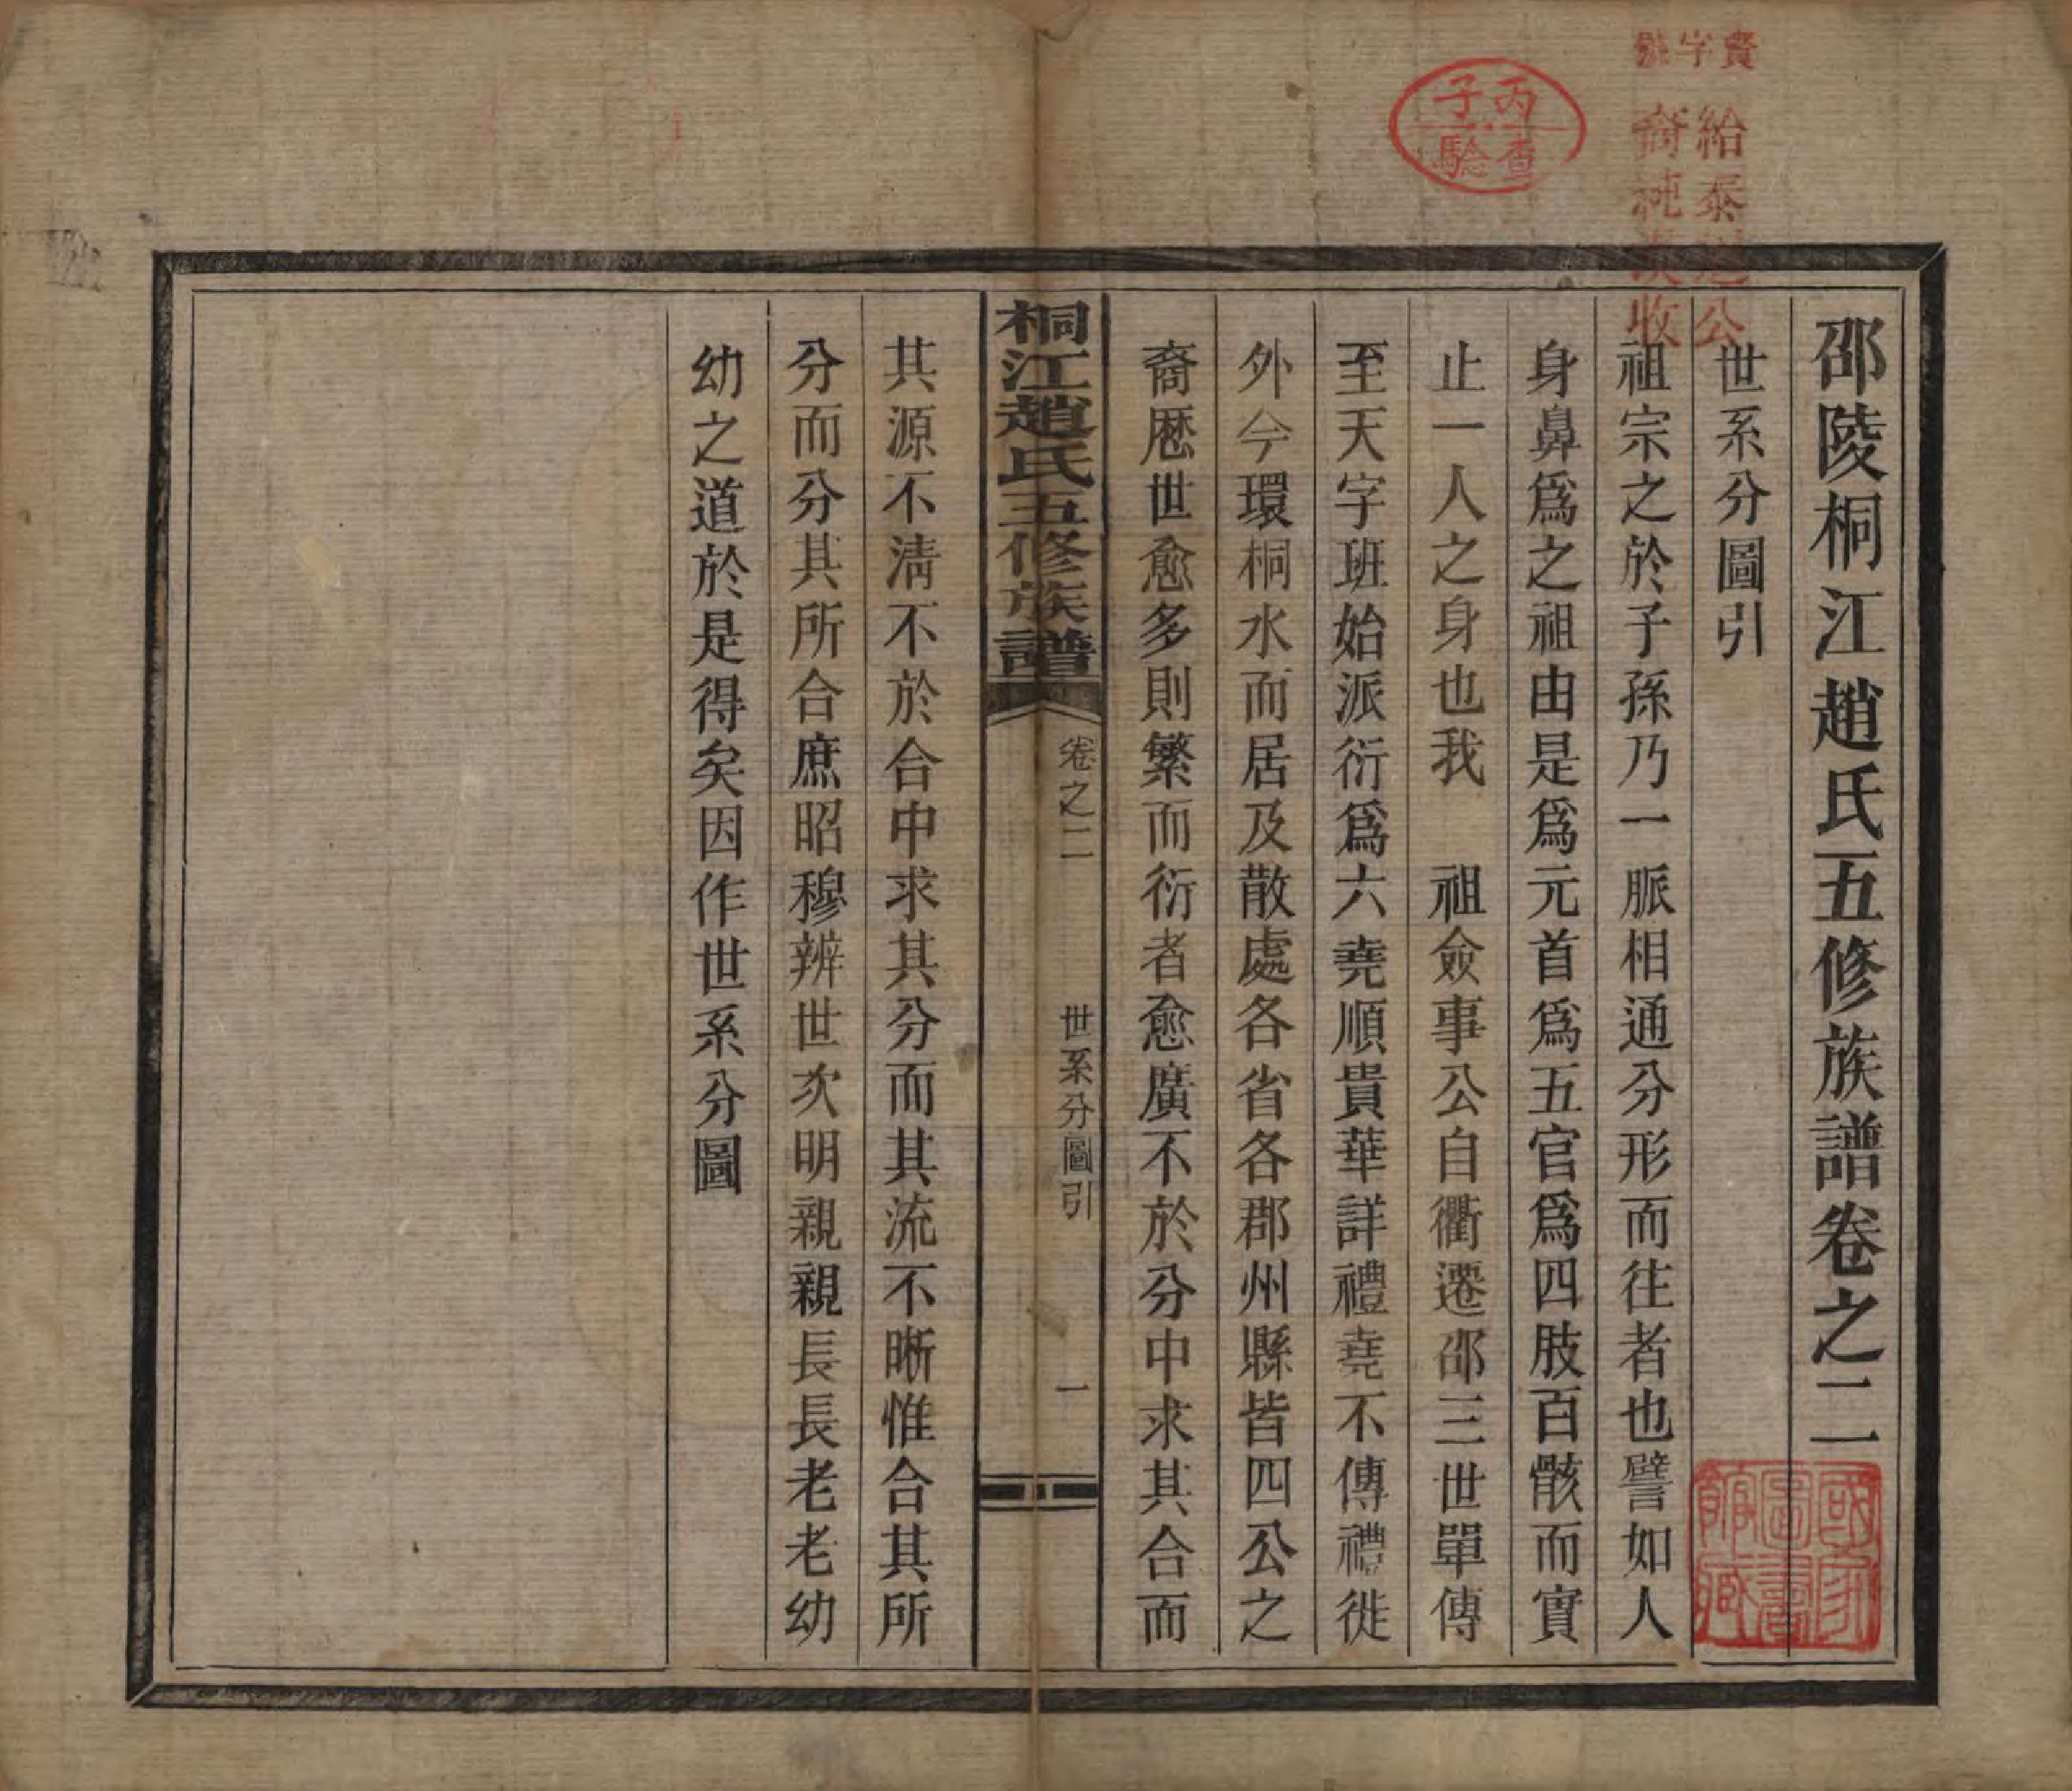 邵陵桐江趙氏五修族譜卷之二
世系分圖引
祖宗之於子孫乃一脈相通分形而往者也譬如人
身鼻爲之祖由是爲元首爲五官爲四肢百骸而實
止一人之身也我　祖僉事公自衢遷邵三世單傳
至天字班始派衍爲六堯順貴華詳禮堯不傳禮徙
外今環桐水而居及散處各省各郡州縣皆四公之
裔厯世愈多則繁而衍者愈廣不於分中求其合而
桐江趙氏五修族譜
卷之二
世系分圖引
一
其源不淸不於合中求其分而其流不晰惟合其所
分而分其所合庶昭穆辨世次明親親長長老老幼
幼之道於是得矣因作世系分圖
丙子
查驗
賢字號
給泰
公
裔純
收
國家
圖書
館藏